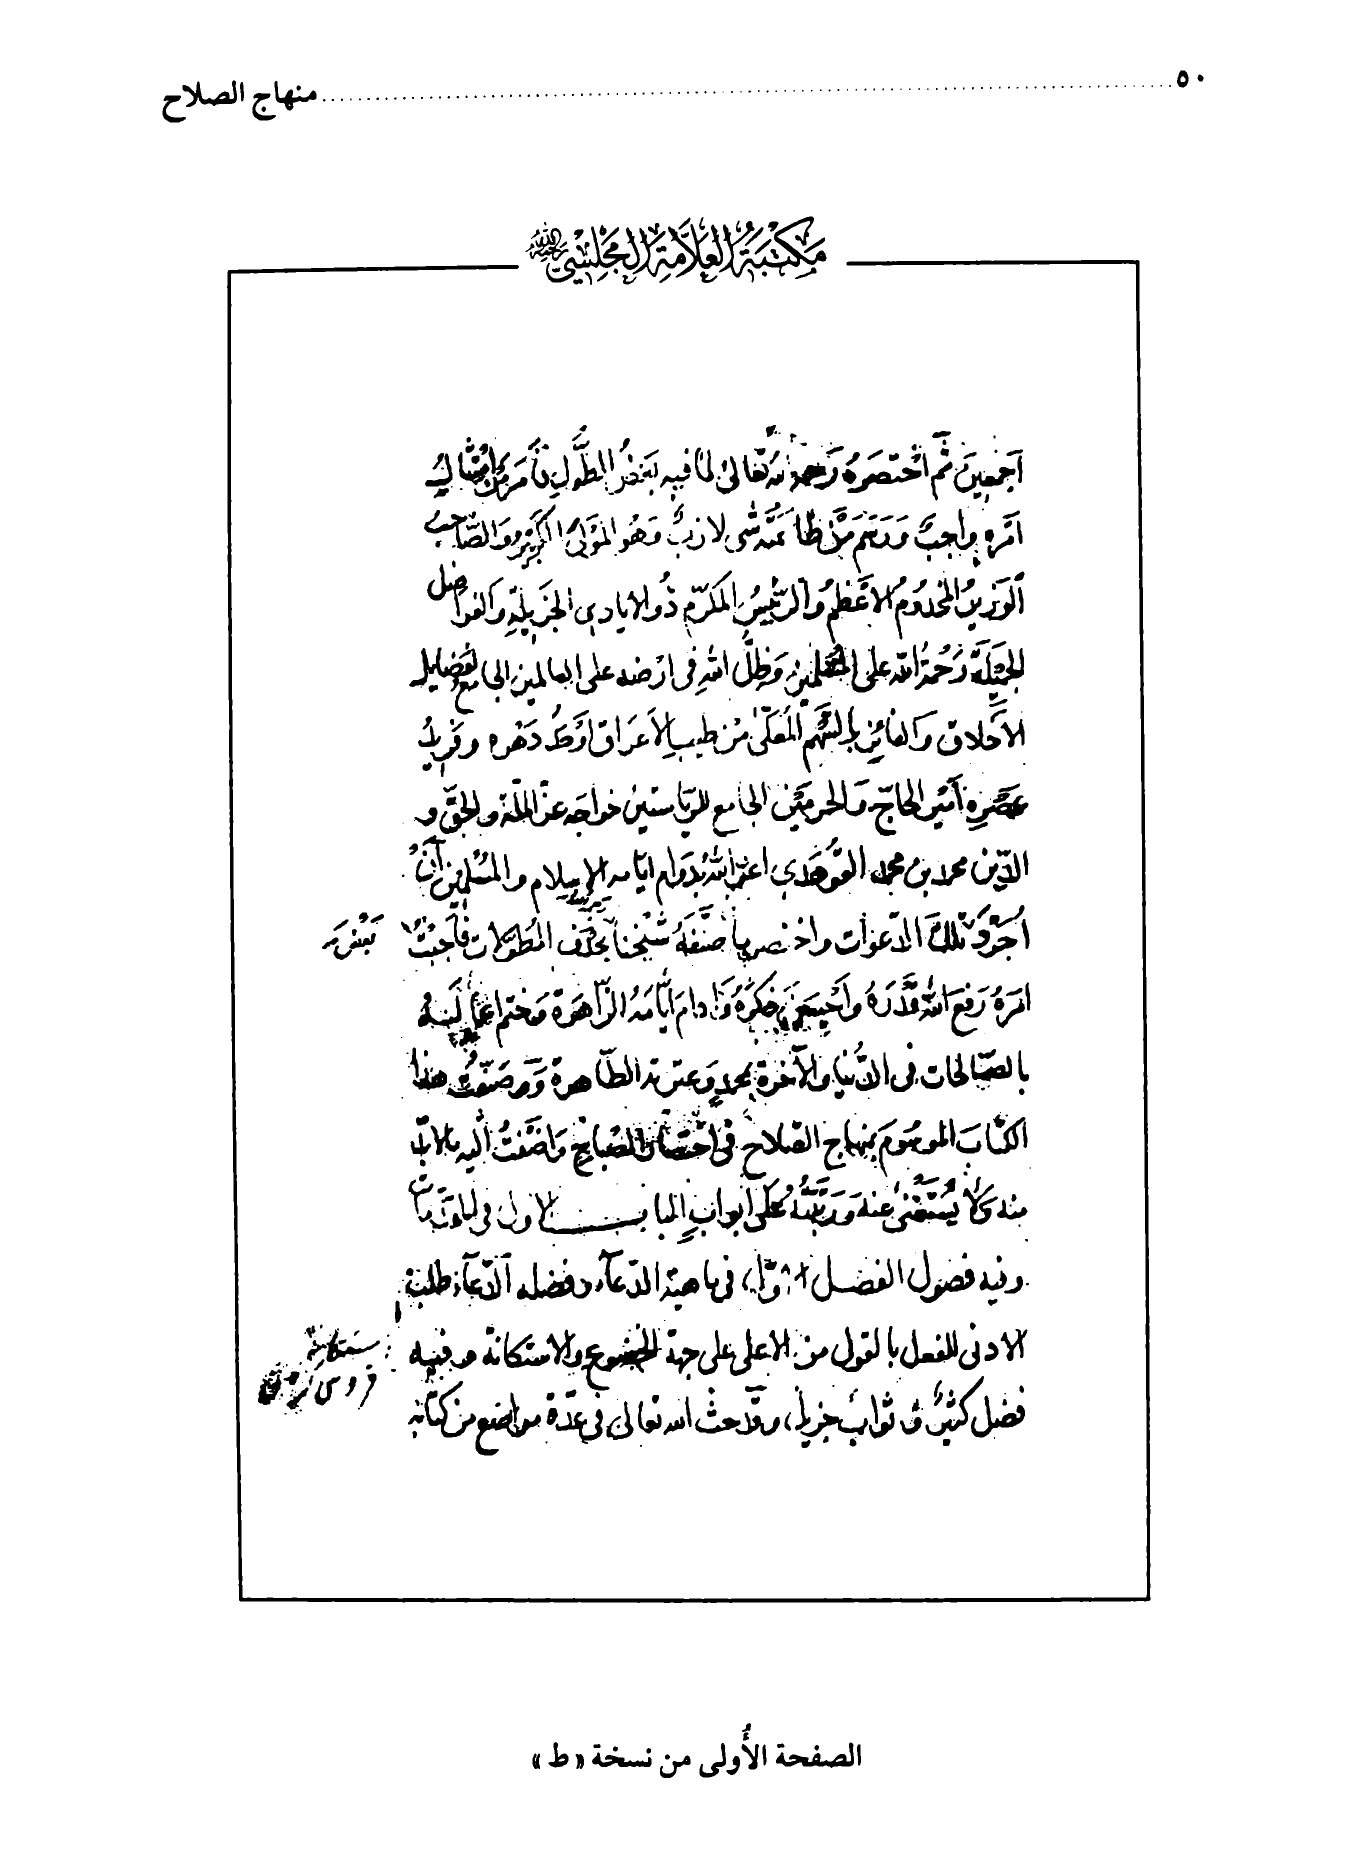 ٥٠ منهاج الصلاح
مكتبة العلامة المجلسي رحمه الله
اجمعين ثم اختصره رحمه الله تعالى لما فيه بحذف المطول فامر من امتثال
امره واجب ورسم من طاعته شيء لازب وهو المولى الكبير والصاحب
الوزير المخدوم الاعظم والرئيس المكرم ذو الايادي الجزيلة والفواضل
الجميلة رحمة الله على وظل الله في ارضه على العالمين الجامع لفضايل
الأخلاق والفائز بالسهم المعلى من طيب الأعراق أوحد دهره وفريد
عصره أمير الحاج والحرمين الجامع للرياستين خواجه عز الملة والحق و
الدين محمد بن محمد القوهدي اعز الله بدوام ايامه الإسلام والمسلمين أن
أجرد تلك الدعوات واختصر ما صنفه شيخنا بحذف المطولات فأجبت
امره رفع الله قدره وأحيى ذكره وادام أيامه الزاهرة وختم أعماله
بالصالحات في الدنيا والآخرة بمحمد وعترته الطاهرة وصنفت هذا
الكتاب الموسوم بمنهاج الصلاح في اختصار المصباح واضفت اليه مالابد
منه ولا يستغنى عنه ورتبته على أبواب الباب الاول في
وفيه فصول الفصل الاول في ماهية الدعاء وفضله الدعاء طلب
الادنى للفعل بالقول من الاعلى على جهة الخضوع والاستكانة وفيه
فضل كثير و ثواب جزيل وقد حث الله تعالى في عدة مواضع من كتابه
الصفحة الأولى من نسخة «ط»